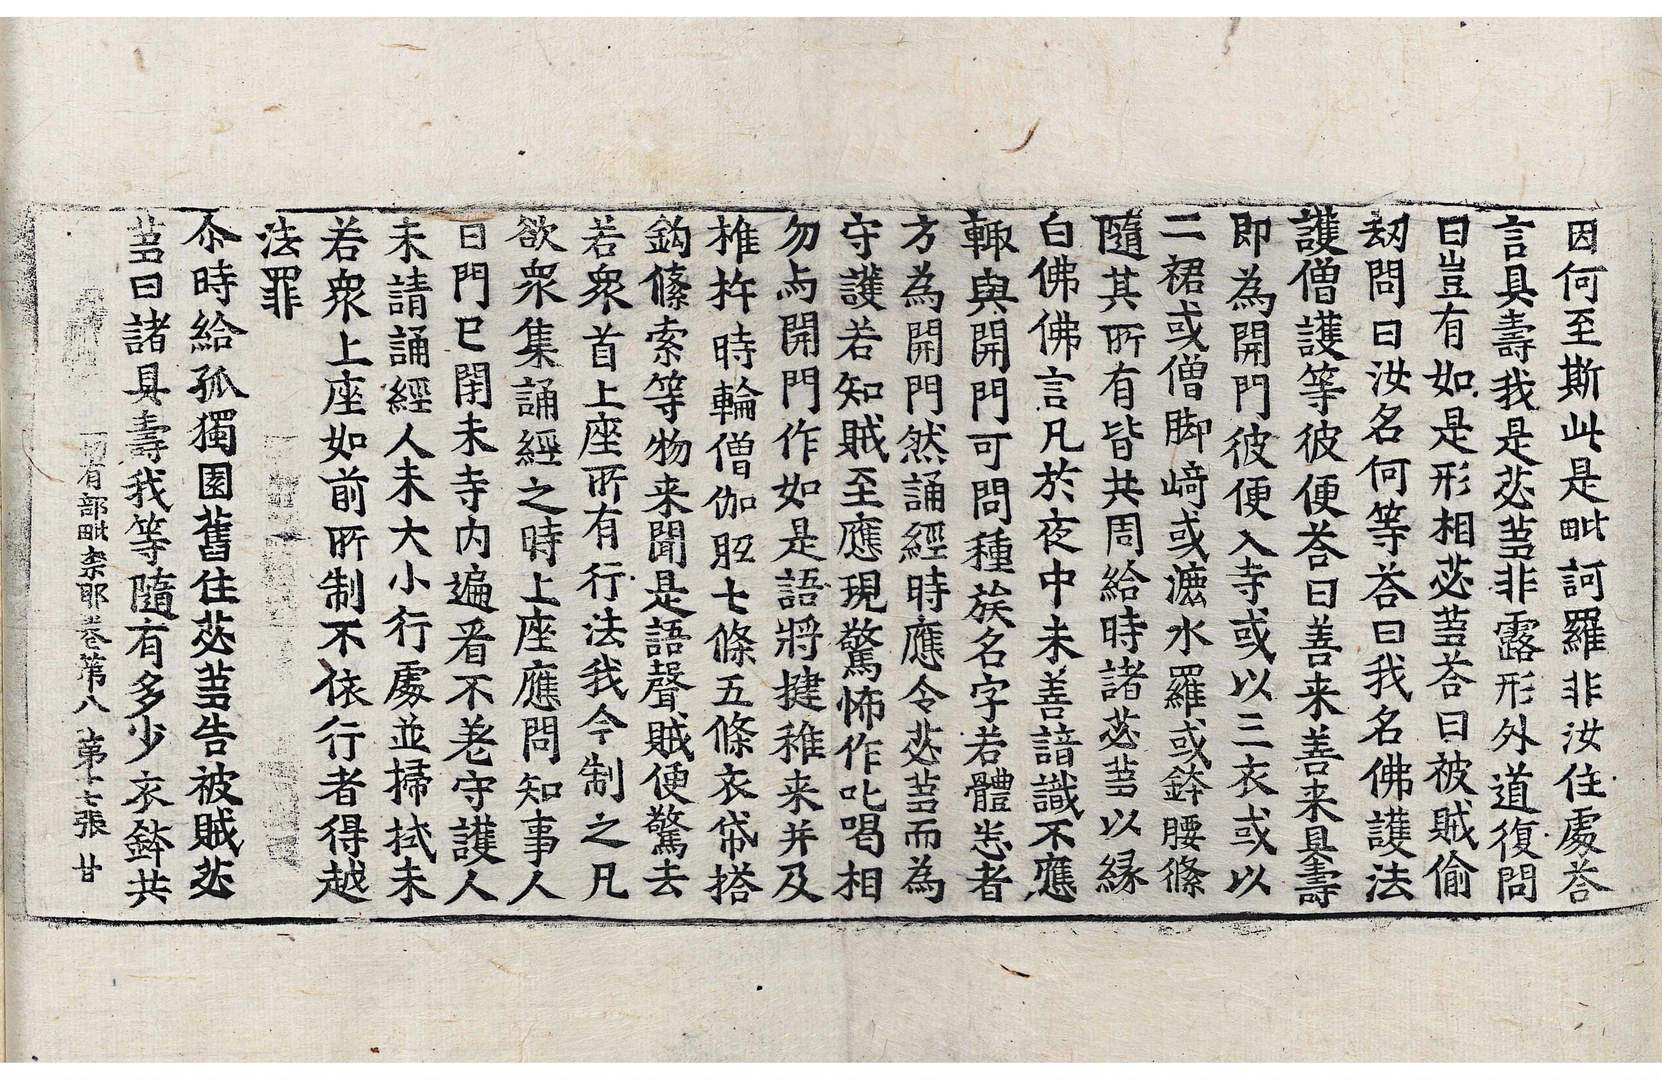 因何至斯此是毗訶羅非汝住處荅
言具壽我是苾蒭非露形外道復問
曰豈有如是形相苾蒭荅曰被賊偷
劫問曰汝名何等荅曰我名佛護法
護僧護等彼便荅曰善来善来具壽
即為開門彼便入寺或以三衣或以
二裙或僧脚㟢或漉水羅或鉢腰絛
隨其所有皆共周給時諸苾蒭以縁
白佛佛言凡於夜中未善諳識不應
輙與開門可問種族名字若體悉者
方為開門然誦經時應令苾蒭而為
守護若知賊至應現驚怖作叱喝相
勿与開門作如是語將揵稚来并及
椎杵時輪僧伽胝七條五條衣帒搭
鈎絛索等物来聞是語聲賊便驚去
若衆首上座所有行法我今制之凡
欲衆集誦經之時上座應問知事人
曰門已閉未寺内遍看不老守護人
未請誦經人未大小行處並掃拭未
若衆上座如前所制不依行者得越
法罪
尒時給孤獨園舊住苾蒭告被賊苾
蒭曰諸具壽我等隨有多少衣鉢共
一切有部毗奈耶卷第八 第十七張 甘